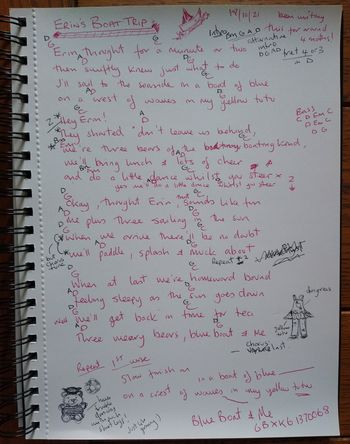 ERIN'S BOAT TRIP
14/10/21
been writing this for around 4 months!
Intro Em G A D
alternative intro
D G A D fret 4 or 3
Erin, thought for a minute or two
then swiftly knew just what to do
I'll sail to the seaside in a boat of blue
on a crest of waves in my yellow tutu
Hey Erin!
They shouted "don't leave us behind,
we're three bears of the boating kind,
we'll bring lunch & lots of cheer
and do a little dance whilst you steer x 2
yes we'll do a little dance whilst you steer
Bass
C D Em C
D Em C
D G
Okay, thought Erin, that sounds like fun
we plan Three sailing in the sun
when we arrive there'll be no doubt
we'll paddle, splash & muck about
Repeat 1 2
When at last we're homeward bound
feeling sleepy as the sun goes down
we'll get back in time for tea
Three weary bears, blue boat & me
dungarees
yellow tutu
chorus
last
Repeat 1st verse
Slow finish on in a boat of blue
on a crest of waves in my yellow tutu
Blue Boat & Me
GBXK61370068